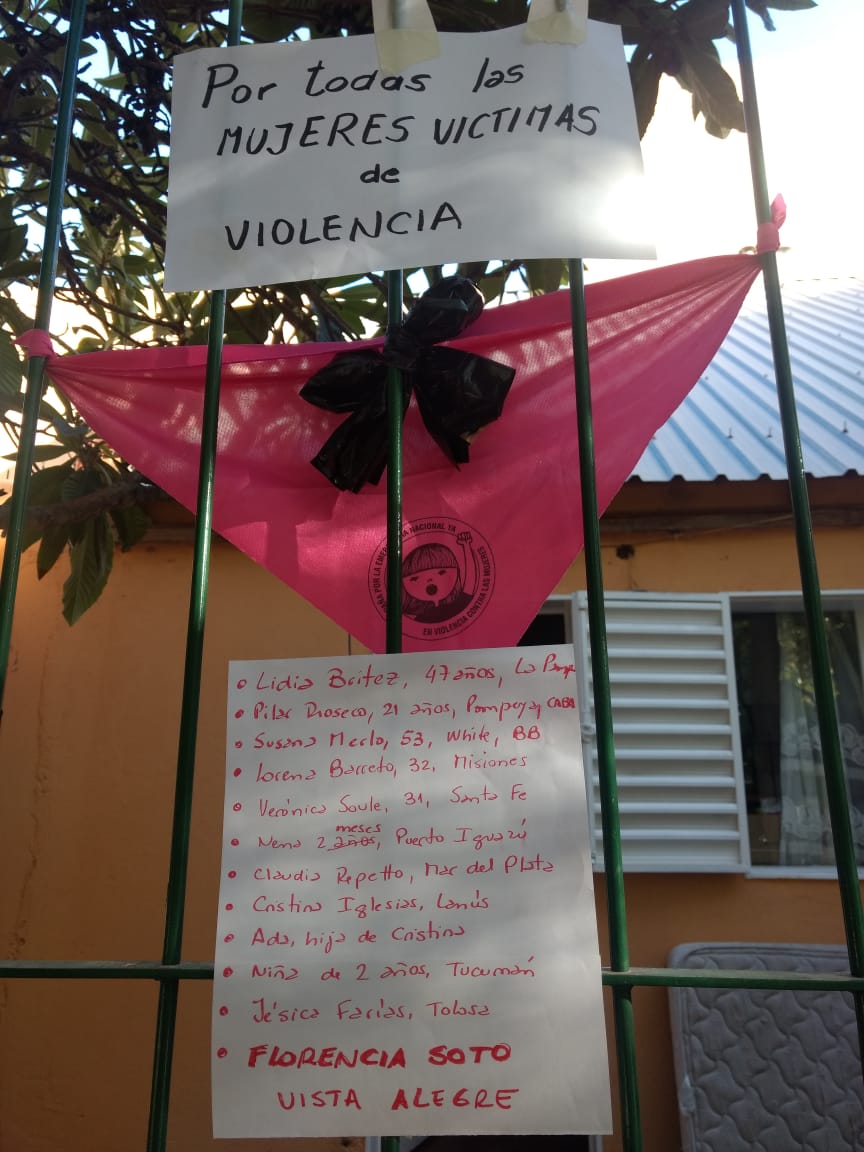 Por todas las
MUJERES VICTIMAS
de
VIOLENCIA
A POR LA EMER A NACIONAL YA
EN VIOLENCIA CONTRA LAS MUJERES
• Lidia Britez, 47 años, La
• Pilar Rioseco, 21 años, Pompeya, CABA
• Susana Merlo, 53, White, BB
• Lorena Barreto, 32, Misiones
• Verónica Soule, 31, Santa Fe
meses
• Nena 2 años, Puerto Iguazú
• Claudia Repetto, Mar del Plata
• Cristina Iglesias, Lanús
• Ada, hija de Cristina
• Niña de 2 años, Tucumán
• Jésica Farías, Tolosa
• FLORENCIA SOTO
VISTA ALEGRE